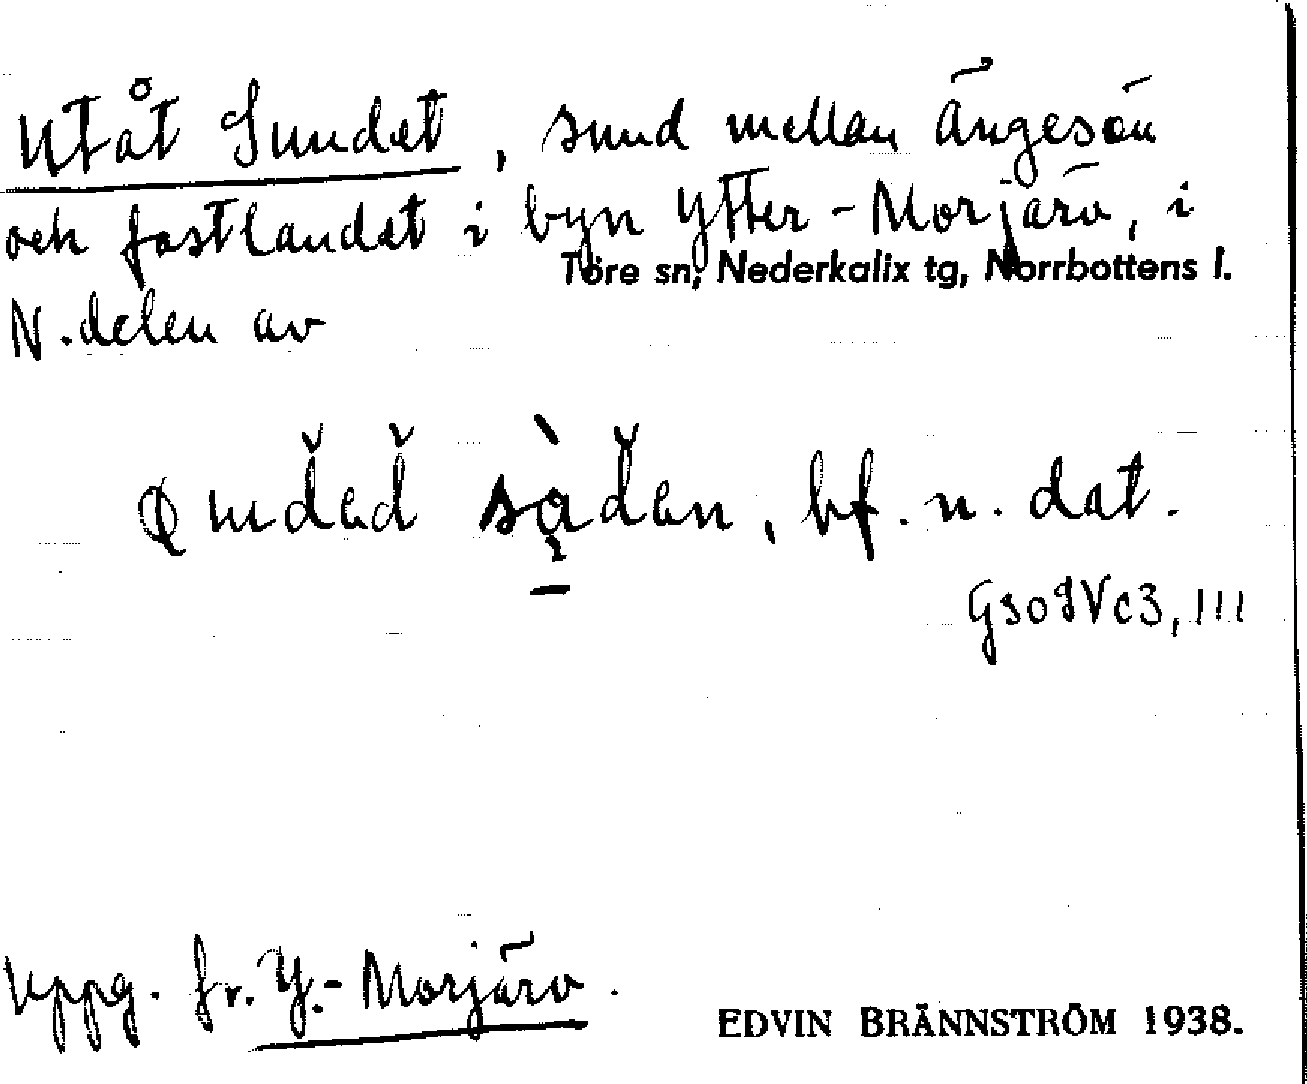 Utåt Sundet, sund mellan Ängesön
och fastlandet i byn Ytter-Morjärv, i
Töre sn, Nederkalix tg, Norrbottens l.
N.delen av
bf. n. dat.
Uppg. fr. Y.-Morjärv.
EDVIN BRÄNNSTRÖM 1938.